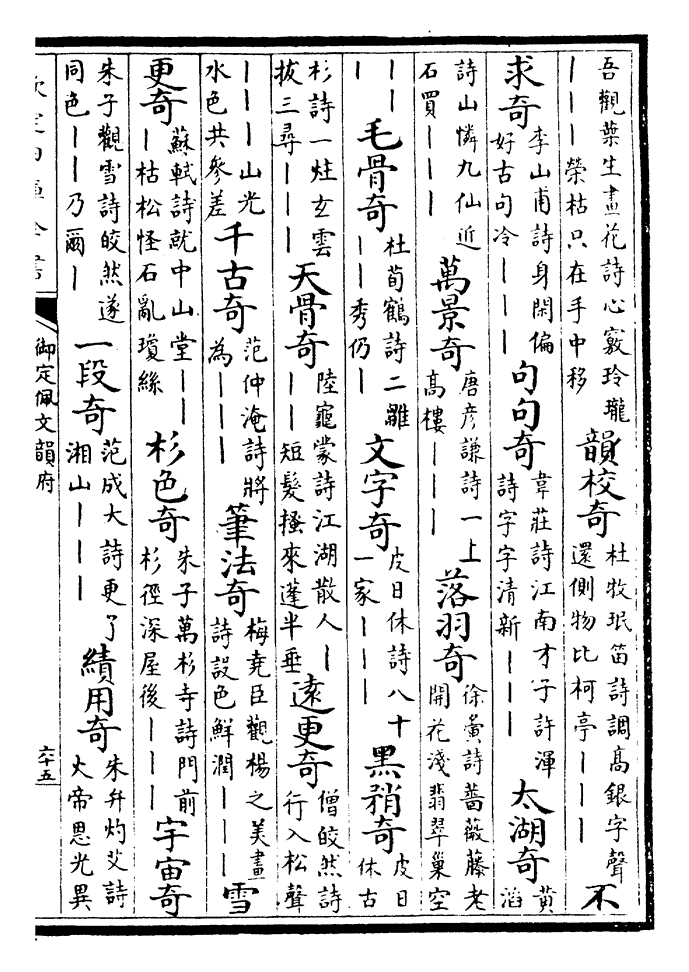 吾觀葉生畫花詩心竅玲瓏丨丨丨榮枯只在手中移韻校奇杜牧珉笛詩調高銀字聲還側物比柯亭丨丨丨不
求奇李山甫詩身閑偏好古句冷丨丨丨句句奇韋莊詩江南才子許渾詩字字清新丨丨丨太湖奇黃滔
詩山憐九仙近石買丨丨丨丨萬景奇唐彥謙詩一上高樓丨丨丨落羽奇徐夤詩薔薇藤老開花淺翡翠巢空
丨丨丨毛骨奇杜荀鶴詩二雛丨丨秀仍丨文字奇皮日休詩八十一家丨丨丨黑矟奇皮日休古
杉詩一炷玄雲拔三尋丨丨丨天骨奇陸龜蒙詩江湖散人丨丨丨短髮搔來蓬半垂遠更奇僧皎然詩行入松聲
丨丨丨山光水色共參差千古奇范仲淹詩將為丨丨丨筆法奇梅堯臣觀楊之美畫詩設色鮮潤丨丨丨雪
更奇蘇軾詩就中山堂丨丨丨枯松怪石亂瓊絲杉色奇朱子萬杉寺詩門前杉徑深屋後丨丨丨宇宙奇
朱子觀雪詩皎然遂同色丨丨乃爾丨一段奇范成大詩更了湘山丨丨丨績用奇朱弁灼艾詩大帝恩光異
欽定四庫全書
御定佩文韻府
六十五